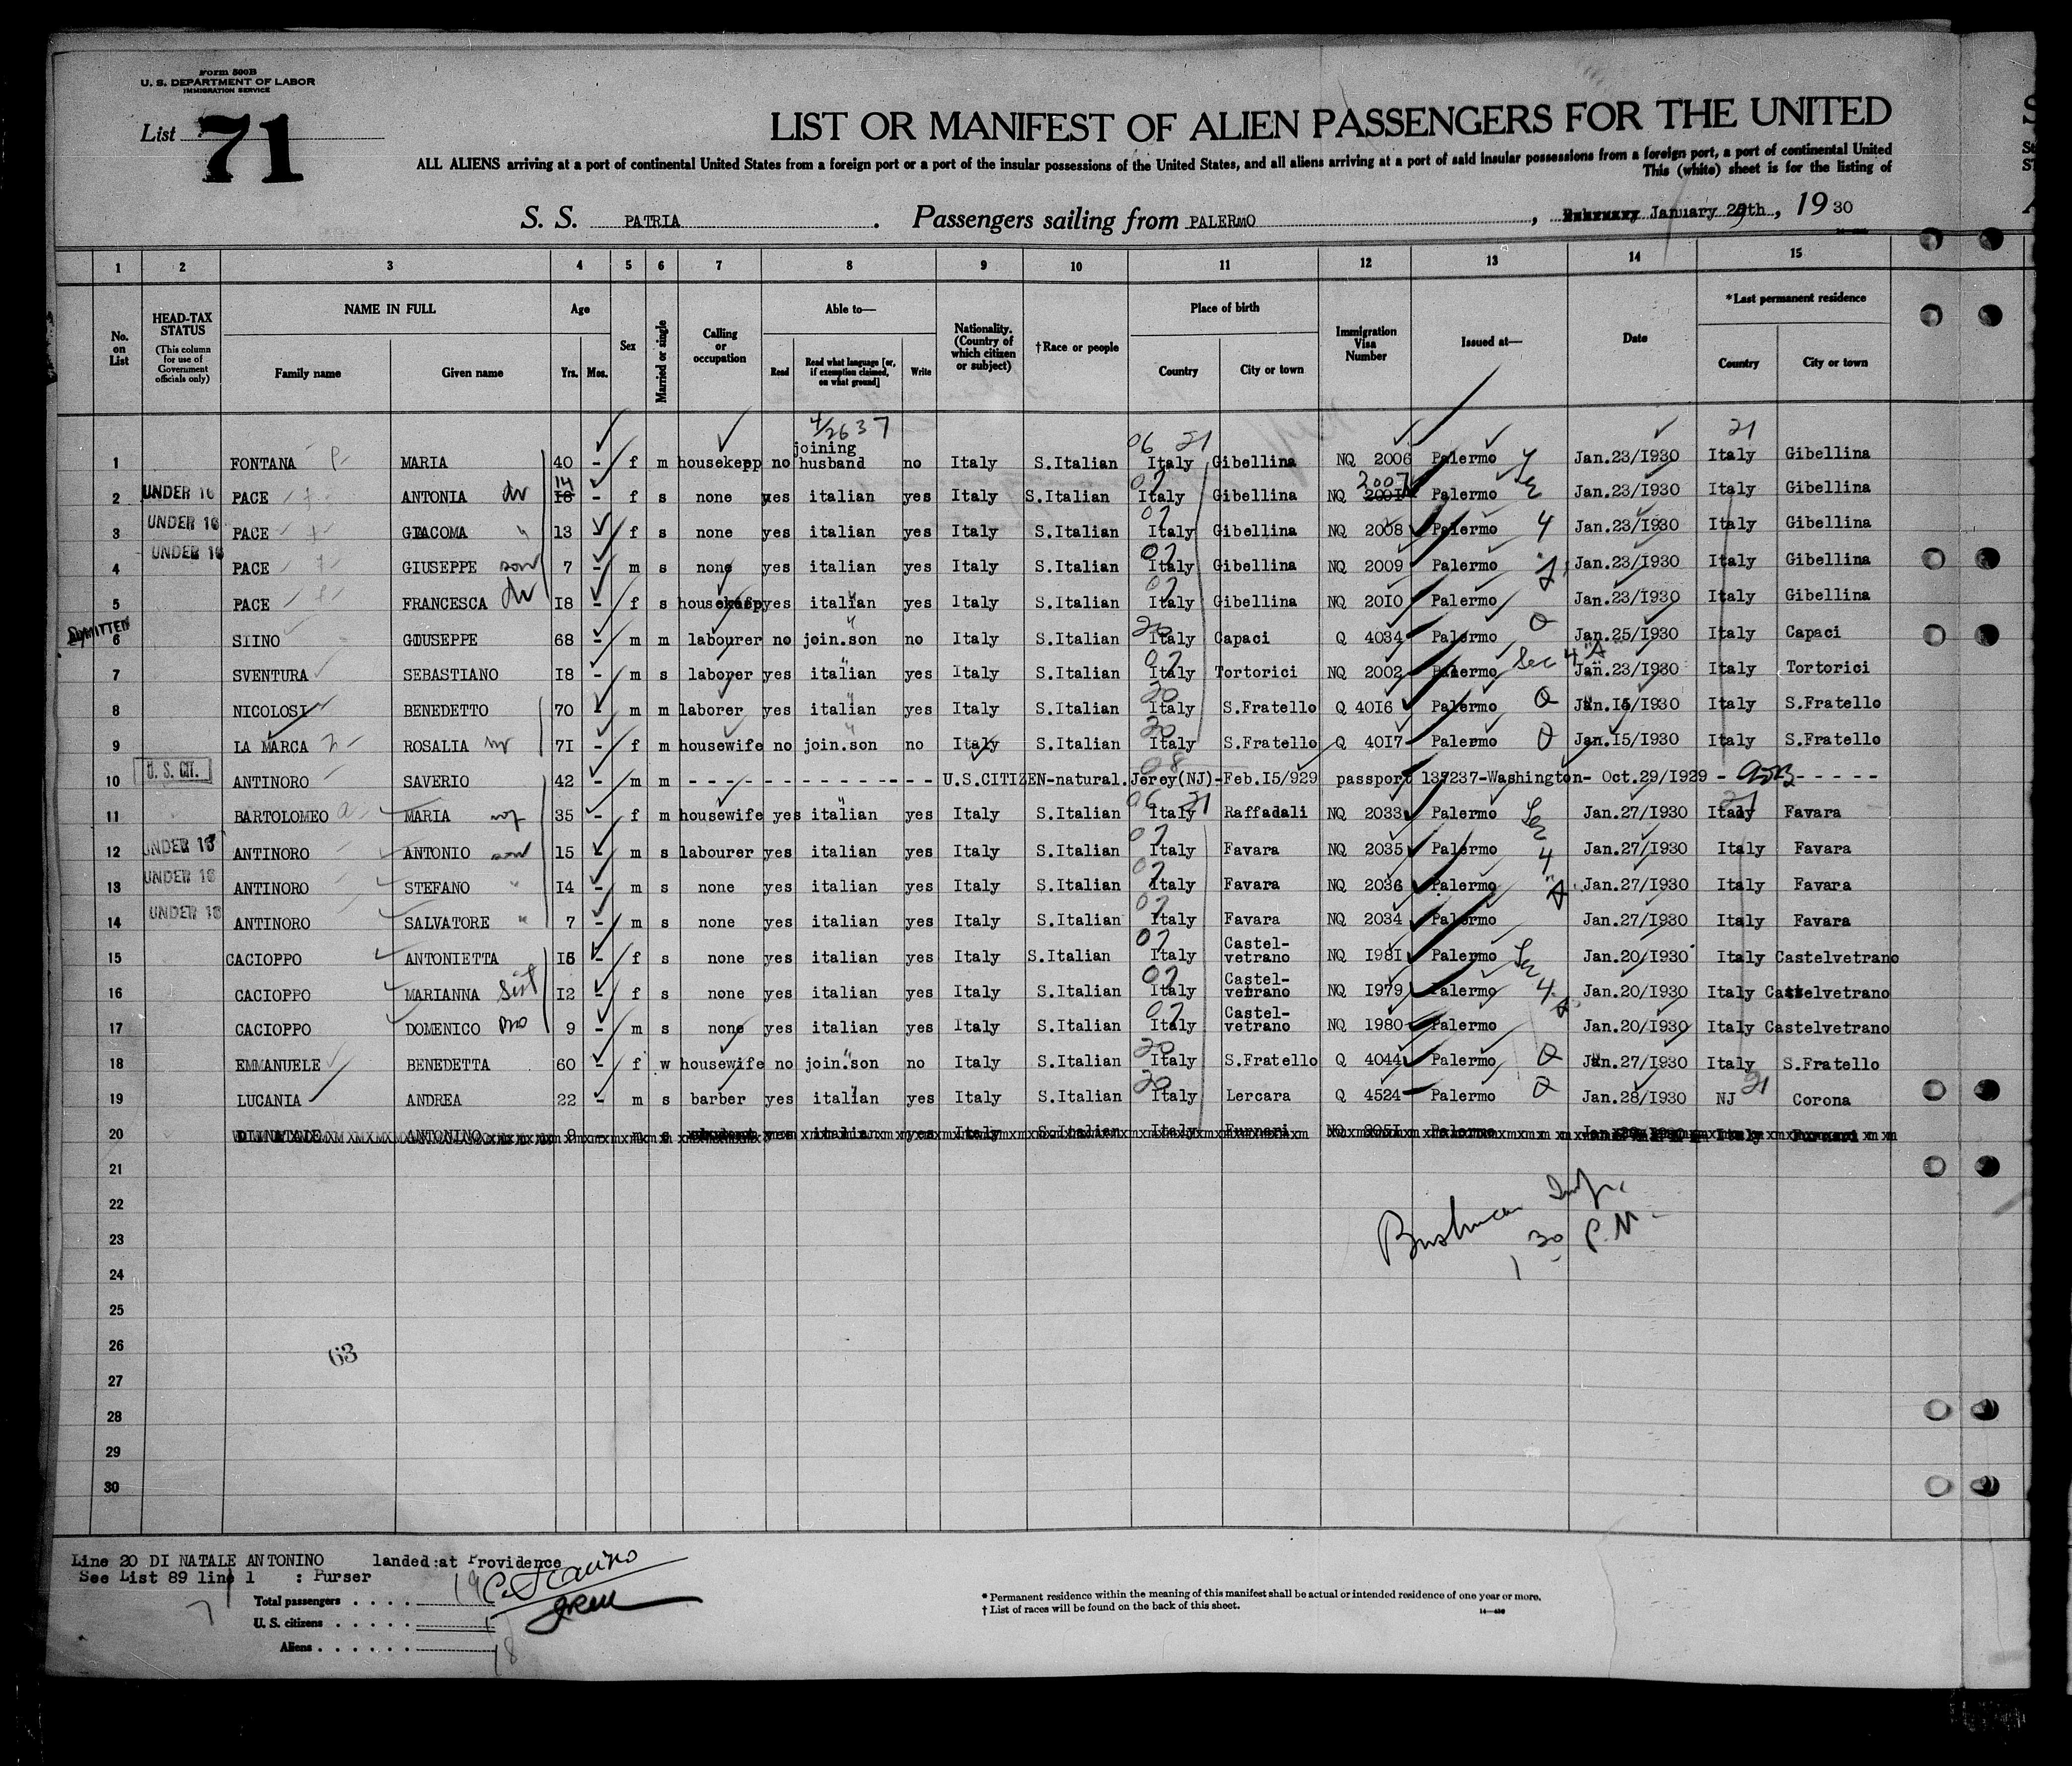 Form 500B
U. S. DEPARTMENT OF LABOR
IMMIGRATION SERVICE
List 71
LIST OR MANIFEST OF ALIEN PASSENGERS FOR THE UNITED
ALL ALIENS arriving at a port of continental United States from a foreign port or a port of the insular possessions of the United States, and all aliens arriving at a port of said insular possessions from a foreign port, a port of continental United
This (white) sheet is for the listing of
S. S. PATRIA . Passengers sailing from PALERMO , January 29th, 19 30
1 2 3 4 5 6 7 8 9 10 11 12 13 14 15
No. on List
HEAD-TAX STATUS (This column for use of Government officials only)
NAME IN FULL Family name Given name
Age Yrs. Mos.
Sex
Married or single
Calling or occupation
Able to— Read Read what language [or, if exemption claimed, on what ground] Write
Nationality. (Country of which citizen or subject)
†Race or people
Place of birth Country City or town
Immigration Visa Number
Issued at—
Date
*Last permanent residence Country City or town
4/26 37
1 FONTANA MARIA 40 - f m housekepp no joining husband no Italy S.Italian 06 21 Italy Gibellina NQ 2006 Palermo Jan.23/I930 21 Italy Gibellina
2 UNDER 16 PACE ANTONIA 14 - f s none yes italian yes Italy S.Italian Italy Gibellina NQ 2007 Palermo Jan.23/I930 Italy Gibellina
3 UNDER 16 PACE GIACOMA " 13 - f s none yes italian yes Italy S.Italian Italy Gibellina NQ 2008 Palermo 4 Jan.23/I930 Italy Gibellina
4 UNDER 16 PACE GIUSEPPE son 7 - m s none yes italian yes Italy S.Italian Italy Gibellina NQ 2009 Palermo Jan.23/I930 Italy Gibellina
5 PACE FRANCESCA I8 - f s housekeep yes italian yes Italy S.Italian Italy Gibellina NQ 20I0 Palermo Jan.23/I930 Italy Gibellina
ADMITTED 6 SIINO GIUSEPPE 68 - m m labourer no join.son no Italy S.Italian 20 Italy Capaci Q 4034 Palermo Q Jan.25/I930 Italy Capaci
7 SVENTURA SEBASTIANO I8 - m s laborer yes italian yes Italy S.Italian Italy Tortorici NQ 2002 Palermo Sec 4 A Jan.23/I930 Italy Tortorici
8 NICOLOSI BENEDETTO 70 - m m laborer yes italian yes Italy S.Italian 20 Italy S.Fratello Q 40I6 Palermo Q Jan.I5/I930 Italy S.Fratello
9 LA MARCA ROSALIA 7I - f m housewife no join.son no Italy S.Italian 20 Italy S.Fratello Q 40I7 Palermo Q Jan.I5/I930 Italy S.Fratello
10 U. S. CIT. ANTINORO SAVERIO 42 - m m - - - - - - - - - - U.S.CITIZEN-natural.Jerey(NJ)-Feb.I5/929 passport 137237-Washington- Oct.29/I929 - - - - - -
11 BARTOLOMEO MARIA 35 - f m housewife yes italian yes Italy S.Italian 06 21 Italy Raffadali NQ 2033 Palermo Jan.27/I930 21 Italy Favara
12 UNDER 16 ANTINORO ANTONIO son 15 - m s labourer yes italian yes Italy S.Italian Italy Favara NQ 2035 Palermo Jan.27/I930 Italy Favara
13 UNDER 16 ANTINORO STEFANO " I4 - m s none yes italian yes Italy S.Italian Italy Favara NQ 2036 Palermo Jan.27/I930 Italy Favara
14 UNDER 16 ANTINORO SALVATORE " 7 - m s none yes italian yes Italy S.Italian Italy Favara NQ 2034 Palermo Jan.27/I930 Italy Favara
15 CACIOPPO ANTONIETTA - f s none yes italian yes Italy S.Italian Italy Castel-vetrano NQ I98I Palermo Jan.20/I930 Italy Castelvetrano
16 CACIOPPO MARIANNA sist I2 - f s none yes italian yes Italy S.Italian Italy Castel-vetrano NQ I979 Palermo Jan.20/I930 Italy Castelvetrano
17 CACIOPPO DOMENICO bro 9 - m s none yes italian yes Italy S.Italian Italy Castel-vetrano NQ I980 Palermo Jan.20/I930 Italy Castelvetrano
18 EMMANUELE BENEDETTA 60 - f w housewife no join.son no Italy S.Italian 20 Italy S.Fratello Q 4044 Palermo Q Jan.27/I930 Italy S.Fratello
19 LUCANIA ANDREA 22 - m s barber yes italian yes Italy S.Italian 20 Italy Lercara Q 4524 Palermo Q Jan.28/I930 NJ 21 Corona
20 DI NATALE ANTONINO 9 m s student yes italian yes Italy S.Italian Italy Furnari NQ 205I Palermo Italy Furnari
21
22
23
24
25
26
27
28
29
30
1 30 P.M.
63
Line 20 DI NATALE ANTONINO landed:at Providence
See List 89 line 1 : Purser
Total passengers . . . . 19
U. S. citizens . . . . . 1
Aliens . . . . . . 18
* Permanent residence within the meaning of this manifest shall be actual or intended residence of one year or more.
† List of races will be found on the back of this sheet.